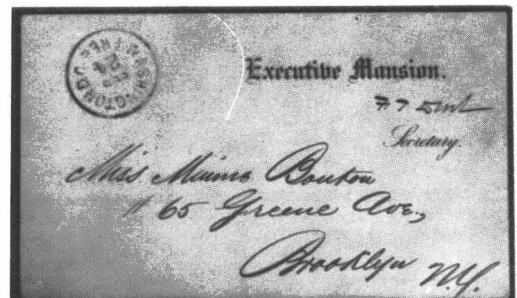 WASHINGTON D.C.
Executive Mansion.
Secretary.
Miss Minna Bouton
65 Greene Ave.,
Brooklyn N.Y.